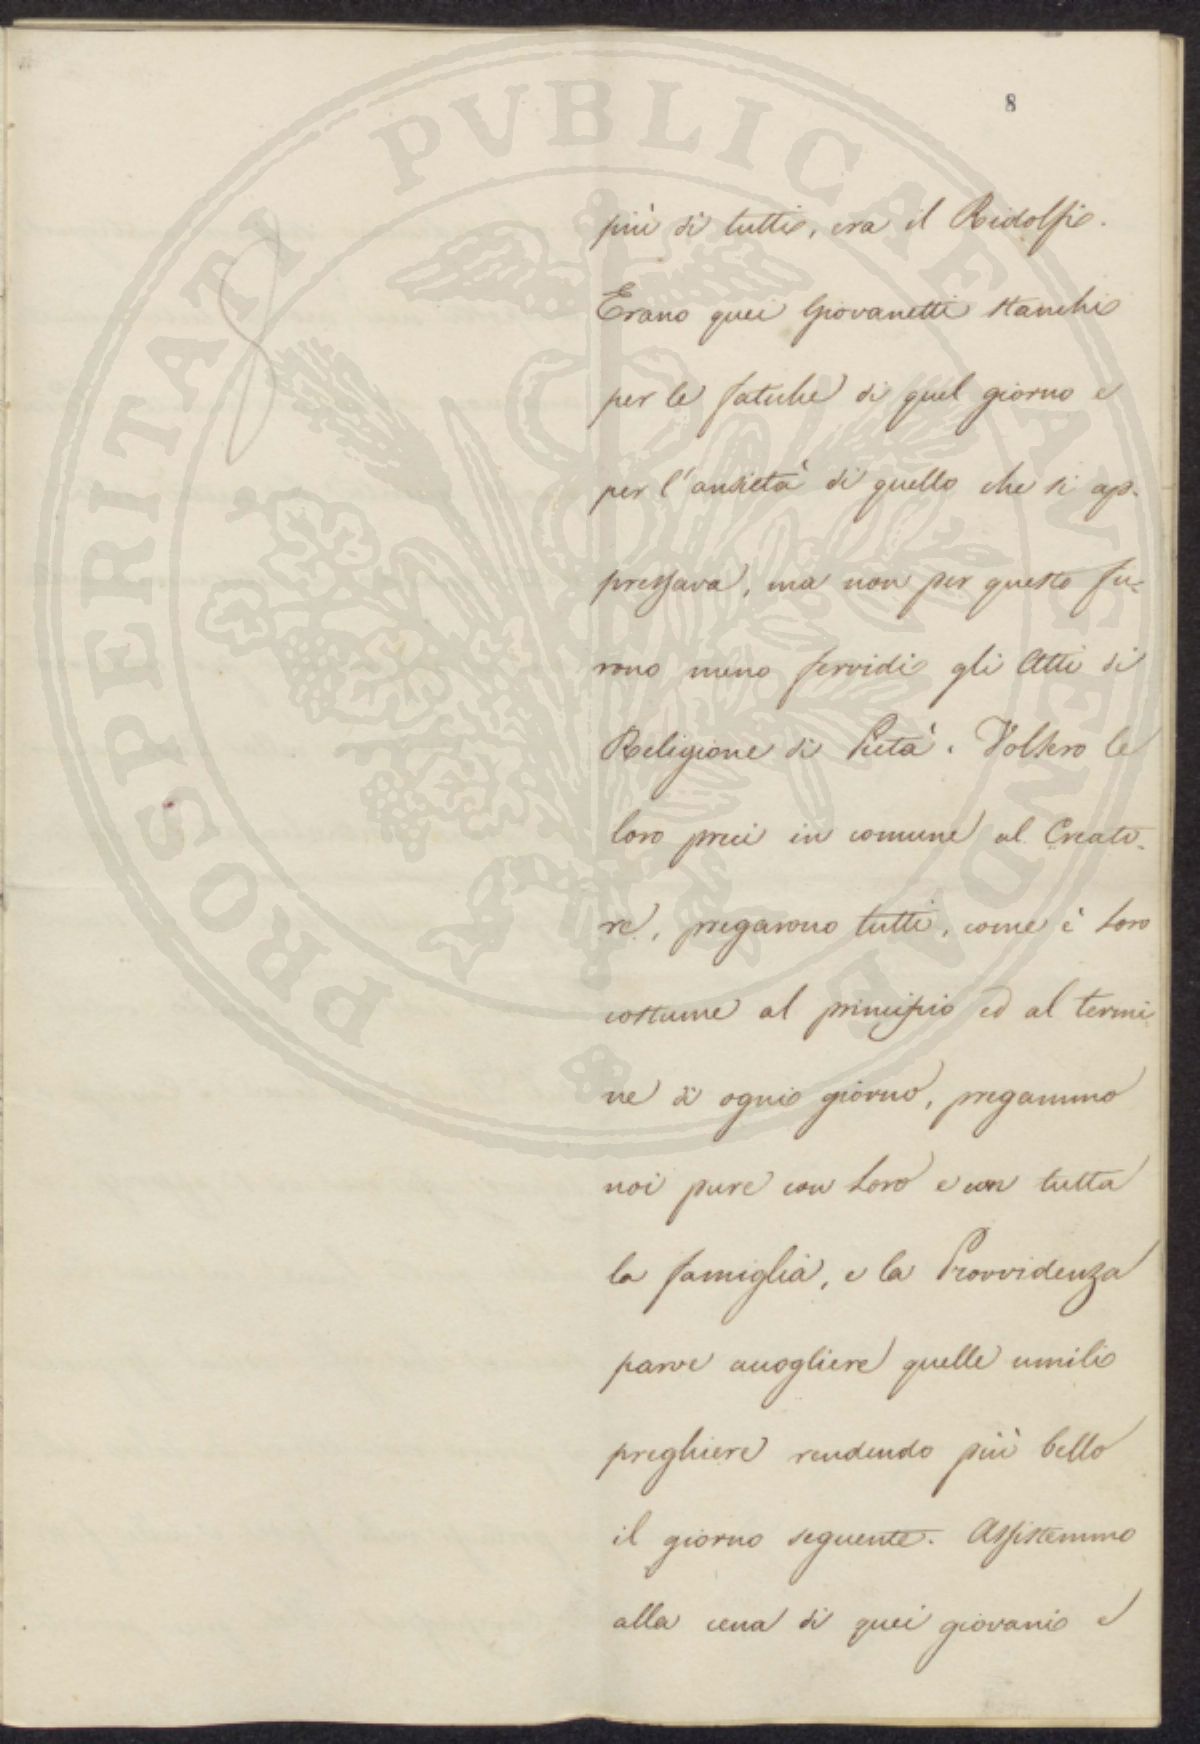 8
più di tutti, era il Ridolfi.
Erano quei Giovanetti stanchi
per le fatiche di quel giorno e
per l'ansietà di quello che si ap-
pressava, ma non per questo fu-
rono meno fervidi gli Atti di
Religione di Pietà. Volsero le
loro preci in comune al Creato-
re, pregarono tutti, come è Loro
costume al principio ed al termi
ne di ogni giorno, pregammo
noi pure con Loro e con tutta
la famiglia, e la Provvidenza
parve accogliere quelle umili
preghiere rendendo più bello
il giorno seguente. Assistemmo
alla cena di quei giovani e
PROSPERITATI PVBLICAE AVGENDAE